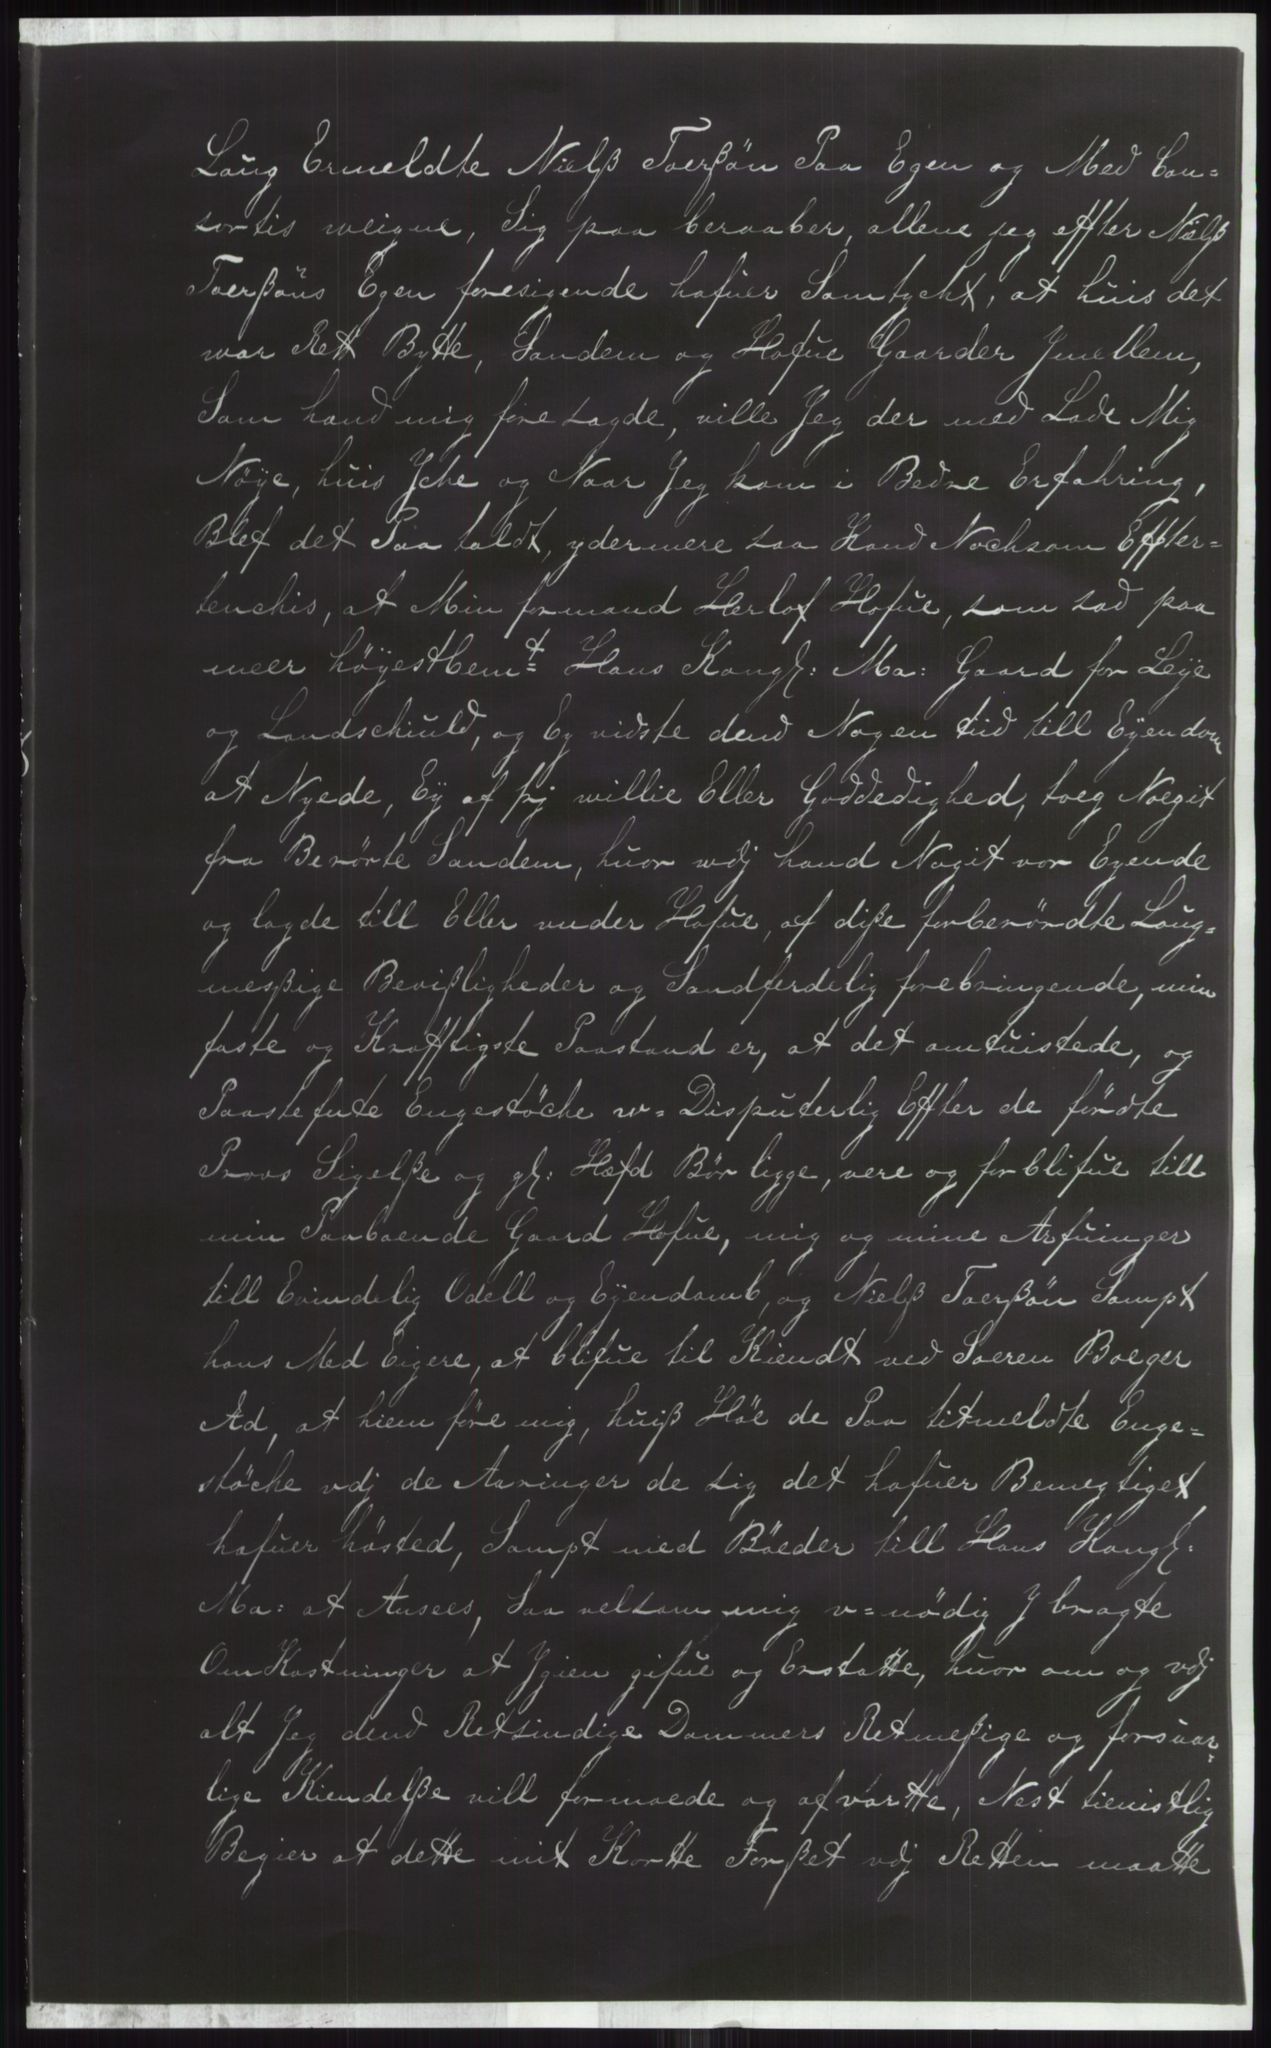 Laug Ermeldte Nielß Toerßön Paa Egen og Med Con=
sortis weigne, Sig paa beraaber, allene jeg effter Nielß
Toerßöns Egen foresigende hafuer Samtycht, at huis det
war Rett Bytte, Sandem og Hofue Gaarder Jmellem,
Som hand mig fore sagde, ville Jeg der med Lade Mig
Nöÿe, huis Jche og Naar Jeg kom i Bedre Erfahring,
Blef det Paa taldt, ydermere saa Kand Nochsom Effter=
tenchis, at Min formand Herlof Hofue, som sad paa
meer höÿestbemt= Hans Kongl: Ma: Gaard for Leÿe
og Landschiuld, og Ey vidste dend Nogen tiid till Eÿendom
at Nyede, Eÿ af frj willie Eller Goddedighed, toeg Noegit
fra Berörte Sandem, huor wdj hand Nogit var Eyende
og lagde till Eller vnder Hofue, af diße forberördte Laug=
meßige Bevißligheder og Sandferdelig forebringende, min
faste og Krafftigste Paastand er, at det omtuistede, og
Paastefnte Engestöche w=Disputerlig Effter de förödte
Provs Sigelße og gl: Hæfd Bör ligge, vere og forblifue till
min Paaboende Gaard Hofue, mig og mine Arfuinger
till Evindelig Odell og Eÿendomb, og Nielß Toerßön Sampt
hans Med Eigere, at blifue til Kiendt ved Soeren Boeger
Æd, at hiem före mig, huiß Höe de Paa titmeldte Enge=
stöche vdj de Aaringer de sig det hafuer Bemegtiget
hafuer hösted, Sampt med Böeder till Hans Kongl:
Ma: at Ansees, Saa velsom mig v=nödig Jbragte
OmKostninger at Jgien gifue og Erstatte, huor om og vdj
alt Jeg dend Retsindige Dommers Retmeßige og forsuar=
lige Kiendelße vill formoede og afvartte, Nest tienistlig
Begier at dette mit Kortte Forßet vdj Retten maatte